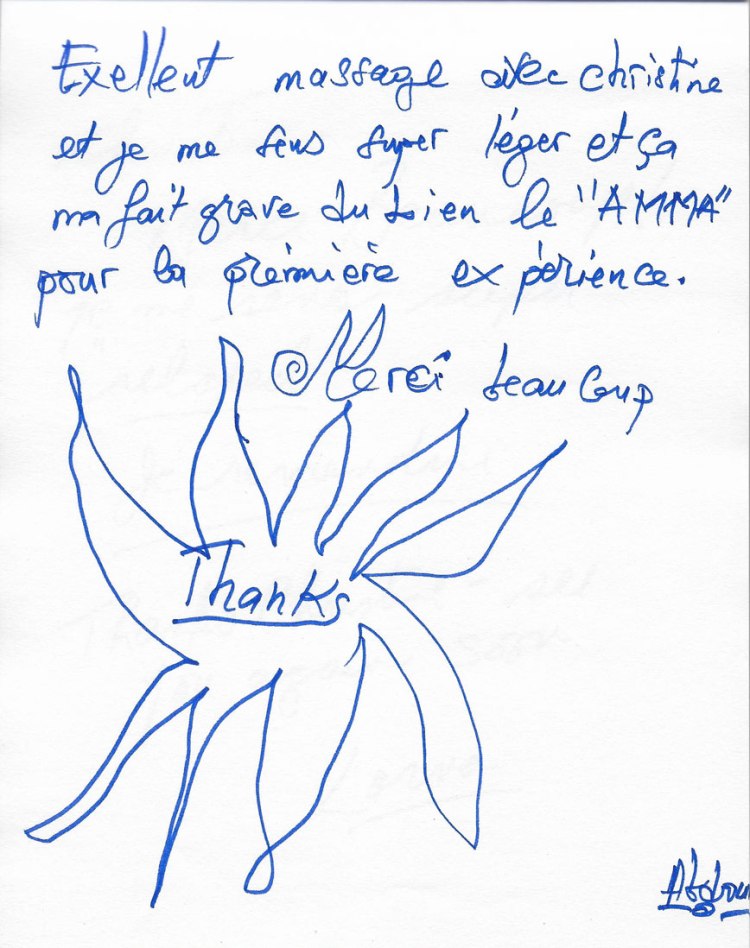 Exellent massage avec christine
et je me sens super léger et ça
ma fait grave du bien le "AMMA"
pour la première expérience.
Merci beaucoup
Thanks